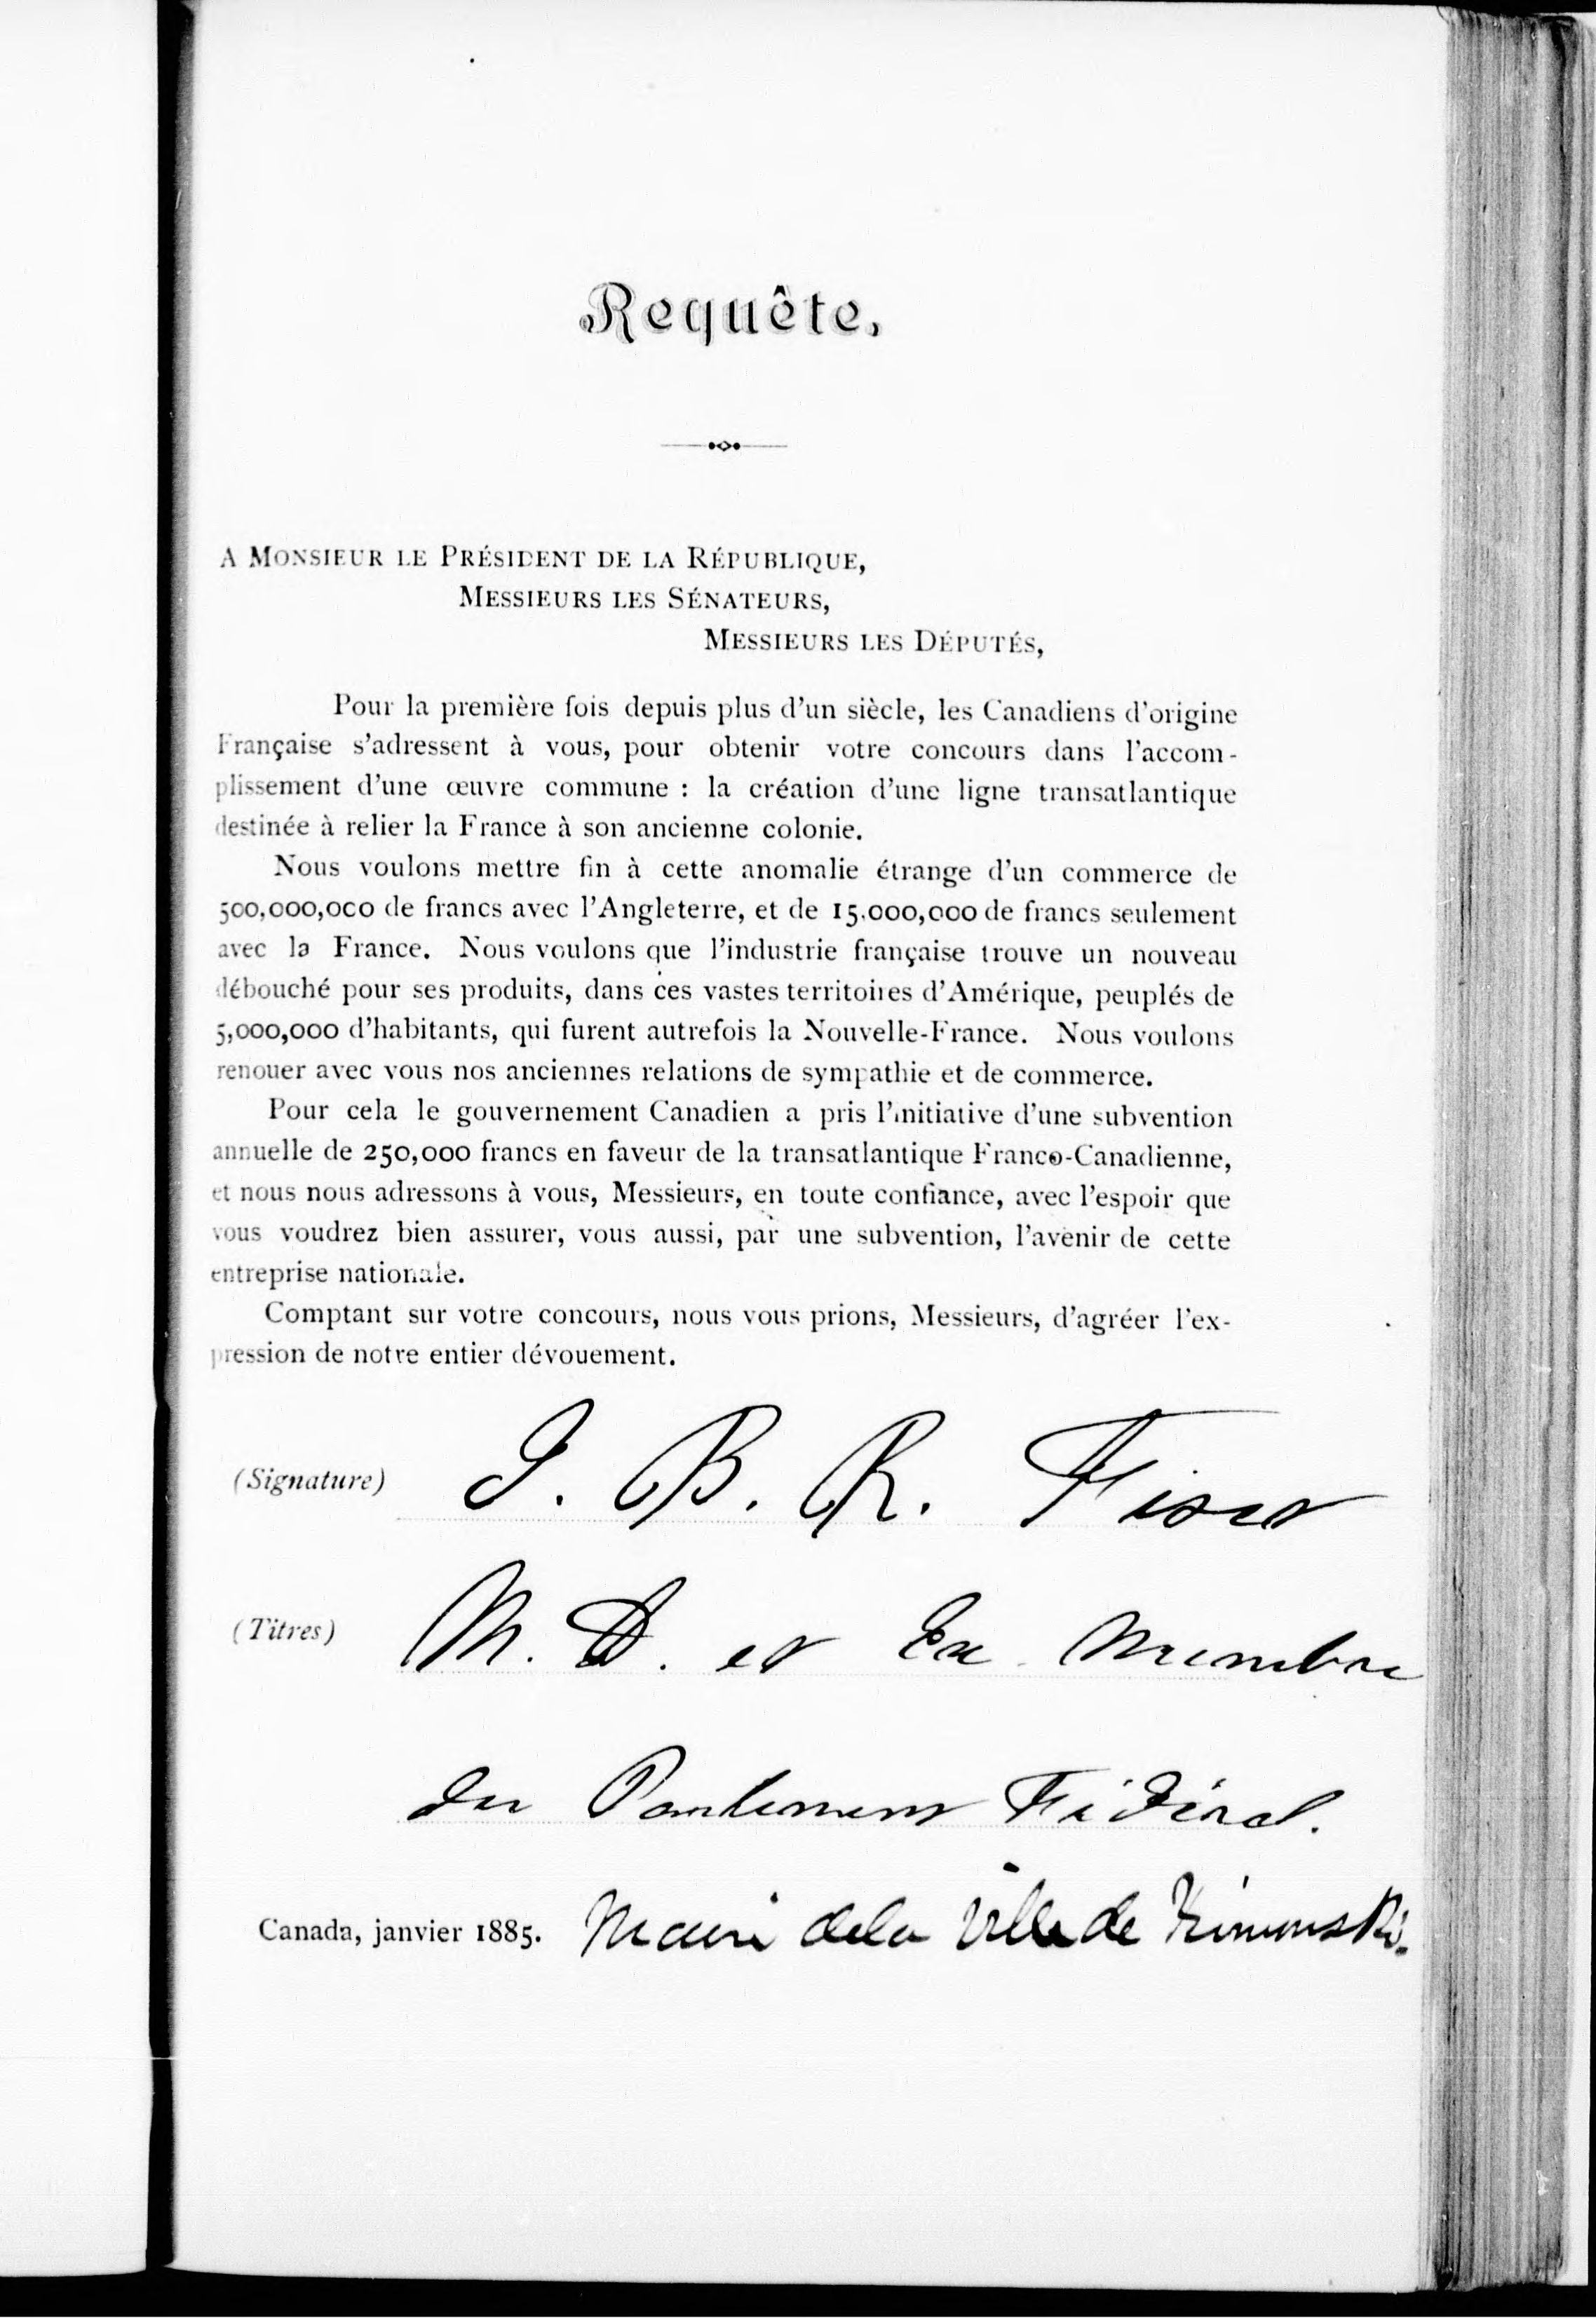 Requête.
A MONSIEUR LE PRÉSIDENT DE LA RÉPUBLIQUE,
MESSIEURS LES SÉNATEURS,
MESSIEURS LES DÉPUTÉS,
Pour la première fois depuis plus d'un siècle, les Canadiens d'origine
Française s'adressent à vous, pour obtenir votre concours dans l'accom-
plissement d'une œuvre commune : la création d'une ligne transatlantique
destinée à relier la France à son ancienne colonie.
Nous voulons mettre fin à cette anomalie étrange d'un commerce de
500,000,000 de francs avec l'Angleterre, et de 15,000,000 de francs seulement
avec la France. Nous voulons que l'industrie française trouve un nouveau
débouché pour ses produits, dans ces vastes territoires d'Amérique, peuplés de
5,000,000 d'habitants, qui furent autrefois la Nouvelle-France. Nous voulons
renouer avec vous nos anciennes relations de sympathie et de commerce.
Pour cela le gouvernement Canadien a pris l'initiative d'une subvention
annuelle de 250,000 francs en faveur de la transatlantique Franco-Canadienne,
et nous nous adressons à vous, Messieurs, en toute confiance, avec l'espoir que
vous voudrez bien assurer, vous aussi, par une subvention, l'avenir de cette
entreprise nationale.
Comptant sur votre concours, nous vous prions, Messieurs, d'agréer l'ex-
pression de notre entier dévouement.
(Signature) J. B. R. Fiset
(Titres) M. D. et Ex Membre
du Parlement Fédéral.
Canada, janvier 1885. Maire de la Ville de Rimouski.